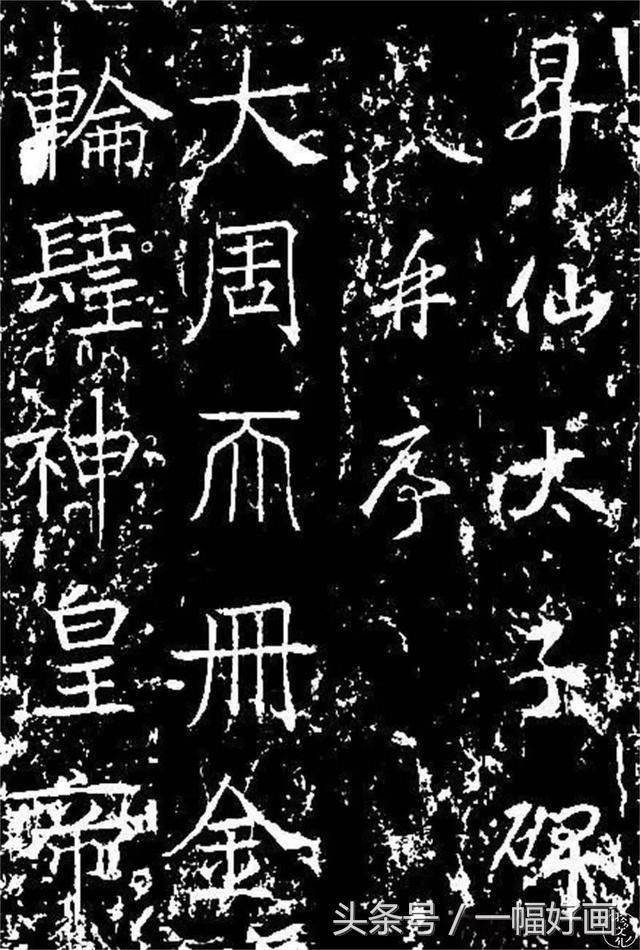 昇仙太子碑
并序
大周𠀑冊金
輪𨲢神皇帝
头条号 / 一幅好画